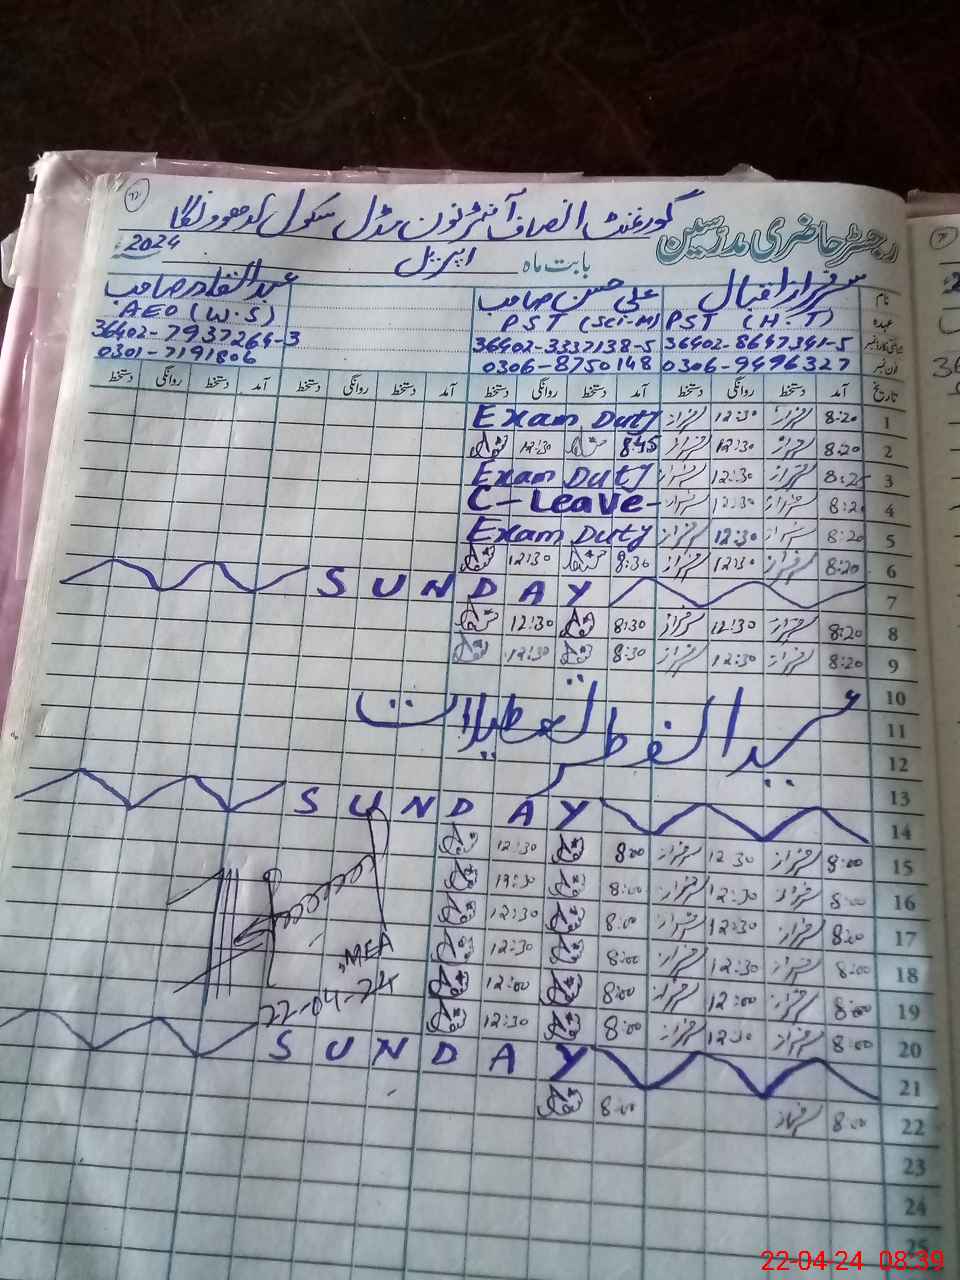 72
گورنمنٹ انصاف آفٹر نون مڈل سکول
رجسٹر حاضری مدرسین
بابت ماہ اپریل 2024
نام سرفراز اقبال علی حسن صاحب عبدالغفار صاحب
عہدہ PST (H.T) PST (Sci-M) AEO (W.S)
36402-8647341-5 36402-3337138-5 36402-7937264-3
فون نمبر 0306-9496327 0306-8750148 0301-7191806
تاریخ آمد دستخط روانگی دستخط آمد دستخط روانگی دستخط آمد دستخط روانگی دستخط آمد دستخط روانگی دستخط
1 8:20 سرفراز 12:30 سرفراز Exam Duty
2 8:20 سرفراز 12:30 سرفراز 8:45 12:30
3 8:25 سرفراز 12:30 سرفراز Exam Duty
4 8:20 سرفراز 12:30 سرفراز C-Leave-
5 8:20 سرفراز 12:30 سرفراز Exam Duty
6 8:20 سرفراز 12:30 سرفراز 8:30 12:30
7 SUNDAY
8 8:20 سرفراز 12:30 سرفراز 8:30 12:30
9 8:20 سرفراز 12:30 سرفراز 8:30 12:30
10
11 عید الفطر تعطیلات
12
13
14 SUNDAY
15 8:00 سرفراز 12:30 سرفراز 8:00 12:30
16 8:00 سرفراز 12:30 سرفراز 8:00 12:30
17 8:00 سرفراز 12:30 سرفراز 8:00 12:30
18 8:00 سرفراز 12:30 سرفراز 8:00 12:30
19 8:00 سرفراز 12:00 سرفراز 8:00 12:00
20 8:00 سرفراز 12:30 سرفراز 8:00 12:30
MEA
22-04-24
21 SUNDAY
22 8:00 سرفراز 8:00
23
24
25
22-04-24 08:39